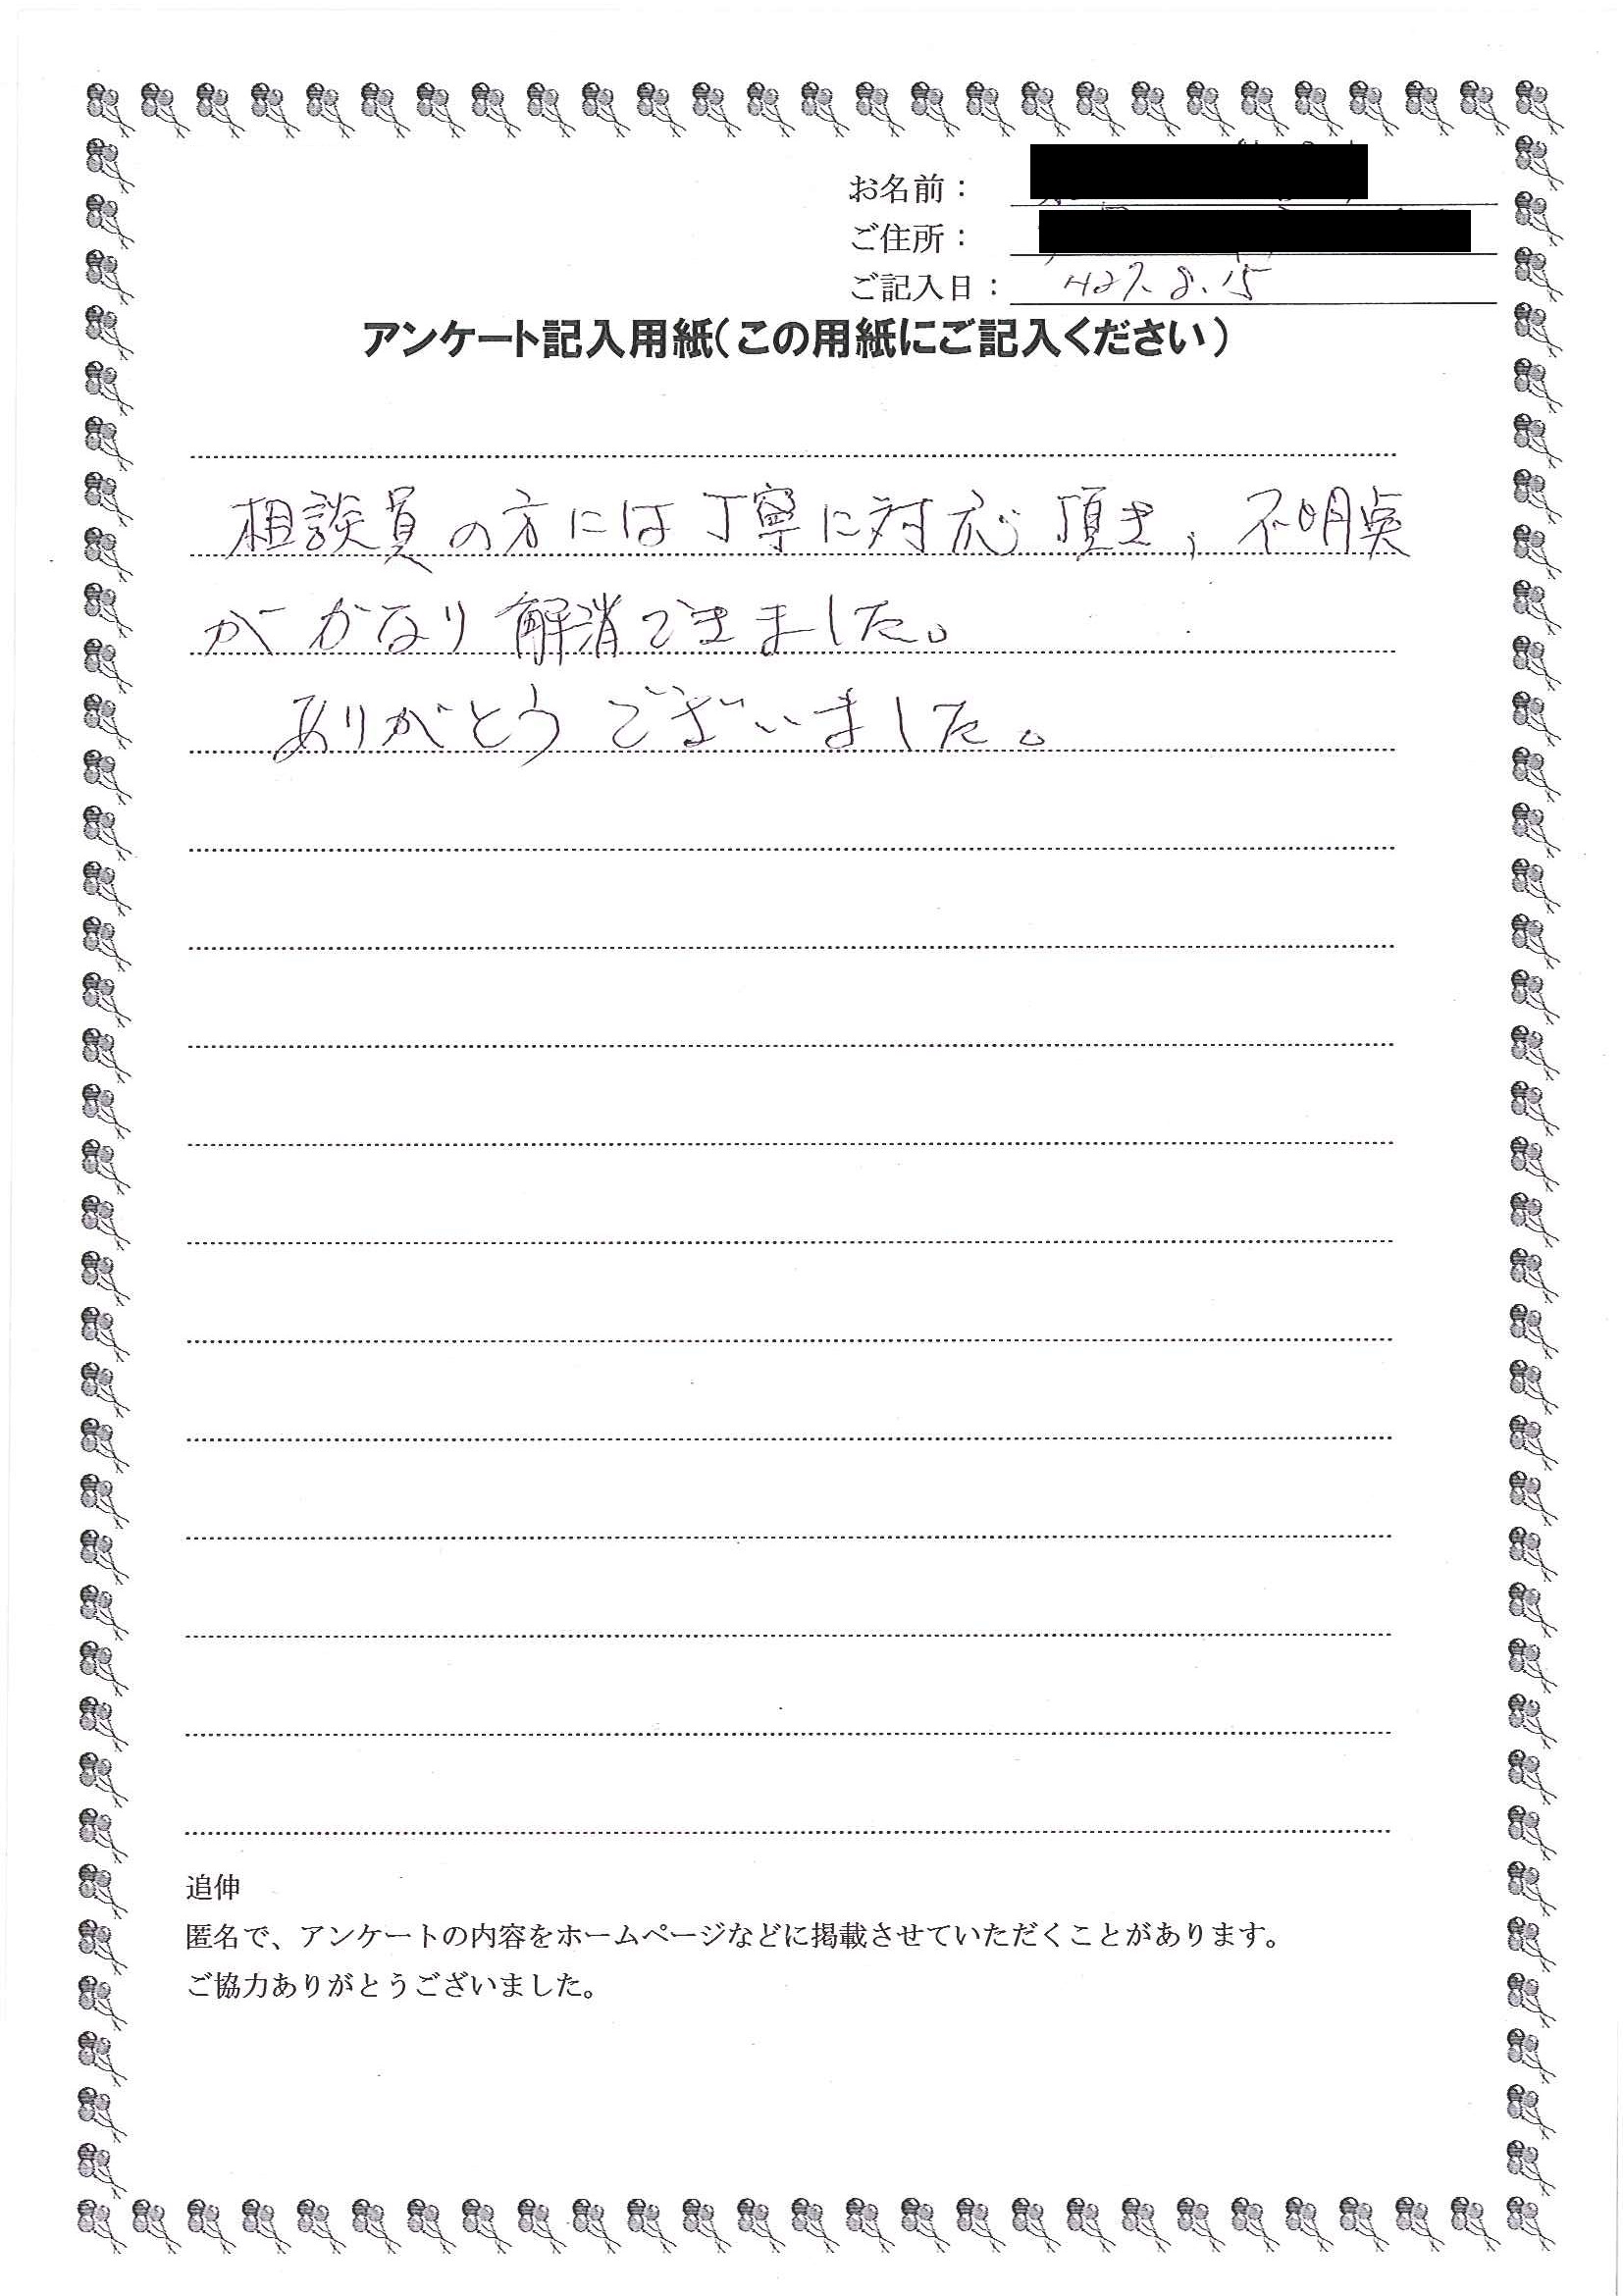 お名前：
ご住所：
ご記入日： H27.8.15
アンケート記入用紙（この用紙にご記入ください）
相談員の方には丁寧に対応頂き、不明点
がかなり解消できました。
ありがとうございました。
追伸
匿名で、アンケートの内容をホームページなどに掲載させていただくことがあります。
ご協力ありがとうございました。